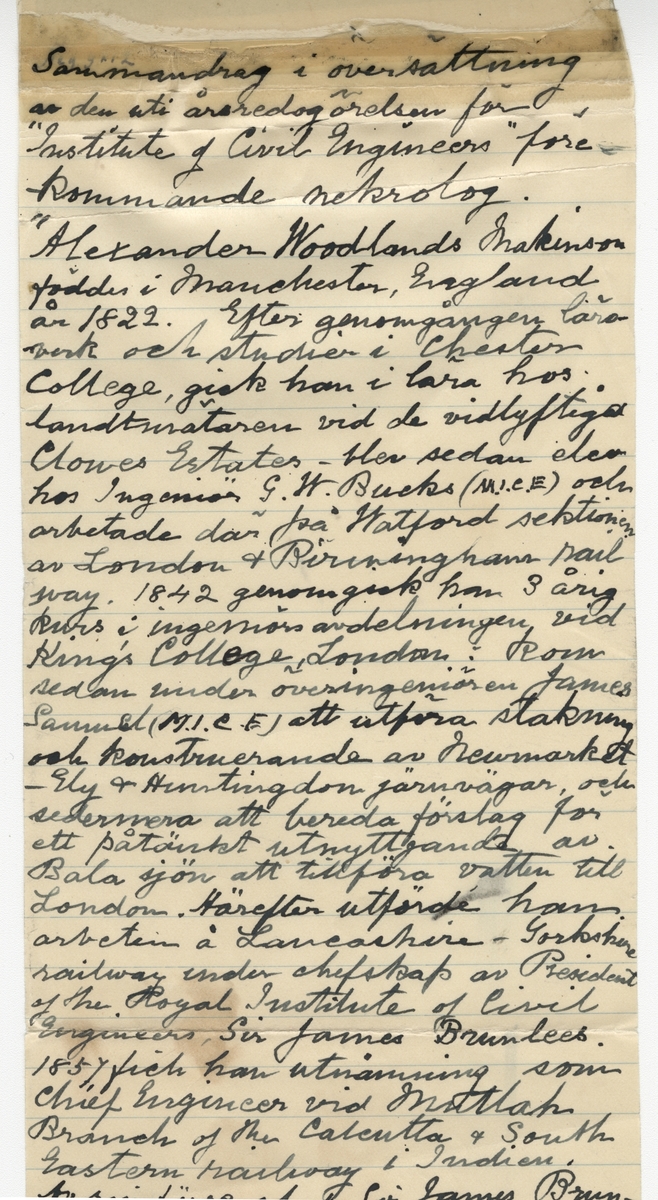 Sammandrag i översättning
av den uti årsredogörelsen för
"Institute of Civil Engineers" före-
kommande nekrolog.
"Alexander Woodlands Makinson
föddes i Manchester, England
år 1822. Efter genomgången läro-
verk och studier i Chester
College, gick han i lära hos
landtmätaren vid de vidlyftiga
Clowes Estates - blev sedan elev
hos Ingeniör G. W. Bucks (M.I.C.E) och
arbetade där på Watford sektionen
av London & Birmingham rail
way. 1842 genomgick han 3 årig
kurs i ingeniörsavdelningen vid
King's College, London: kom
sedan under överingeniören James
Samuel (M.I.C.E) att utföra stakning
och konstruerande av Newmarket
- Ely & Huntingdon järnvägar, och
sedermera att bereda förslag för
ett påtänkt utnyttjande av
Bala sjön att tillföra vatten till
London. Härefter utförde han
arbeten å Lancashire - Yorkshire
railway under chefskap av President
of the Royal Institute of Civil
Engineers, Sir James Brunlees.
1857 fick han utnämning som
Chief Engineer vid Mutlah
Branch of the Calcutta & South
Eastern railway i Indien.
Sir James Brun-